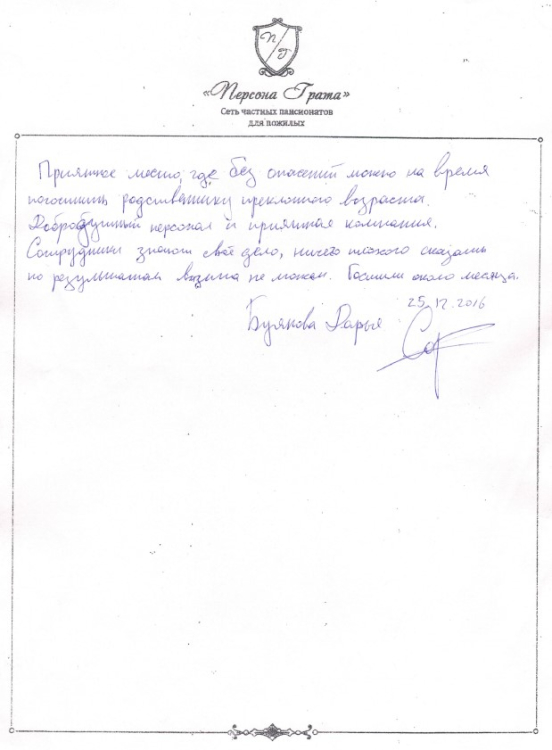 П Г
«Персона Грата»
Сеть частных пансионатов
для пожилых
Приятное место, где без опасений можно на время
погостить родственнику преклонного возраста.
Добродушный персонал и приятная компания.
Сотрудники знают своё дело, ничего плохого сказать
по результатам визита не можем. Гостили около месяца.
25.12.2016
Буякова Дарья